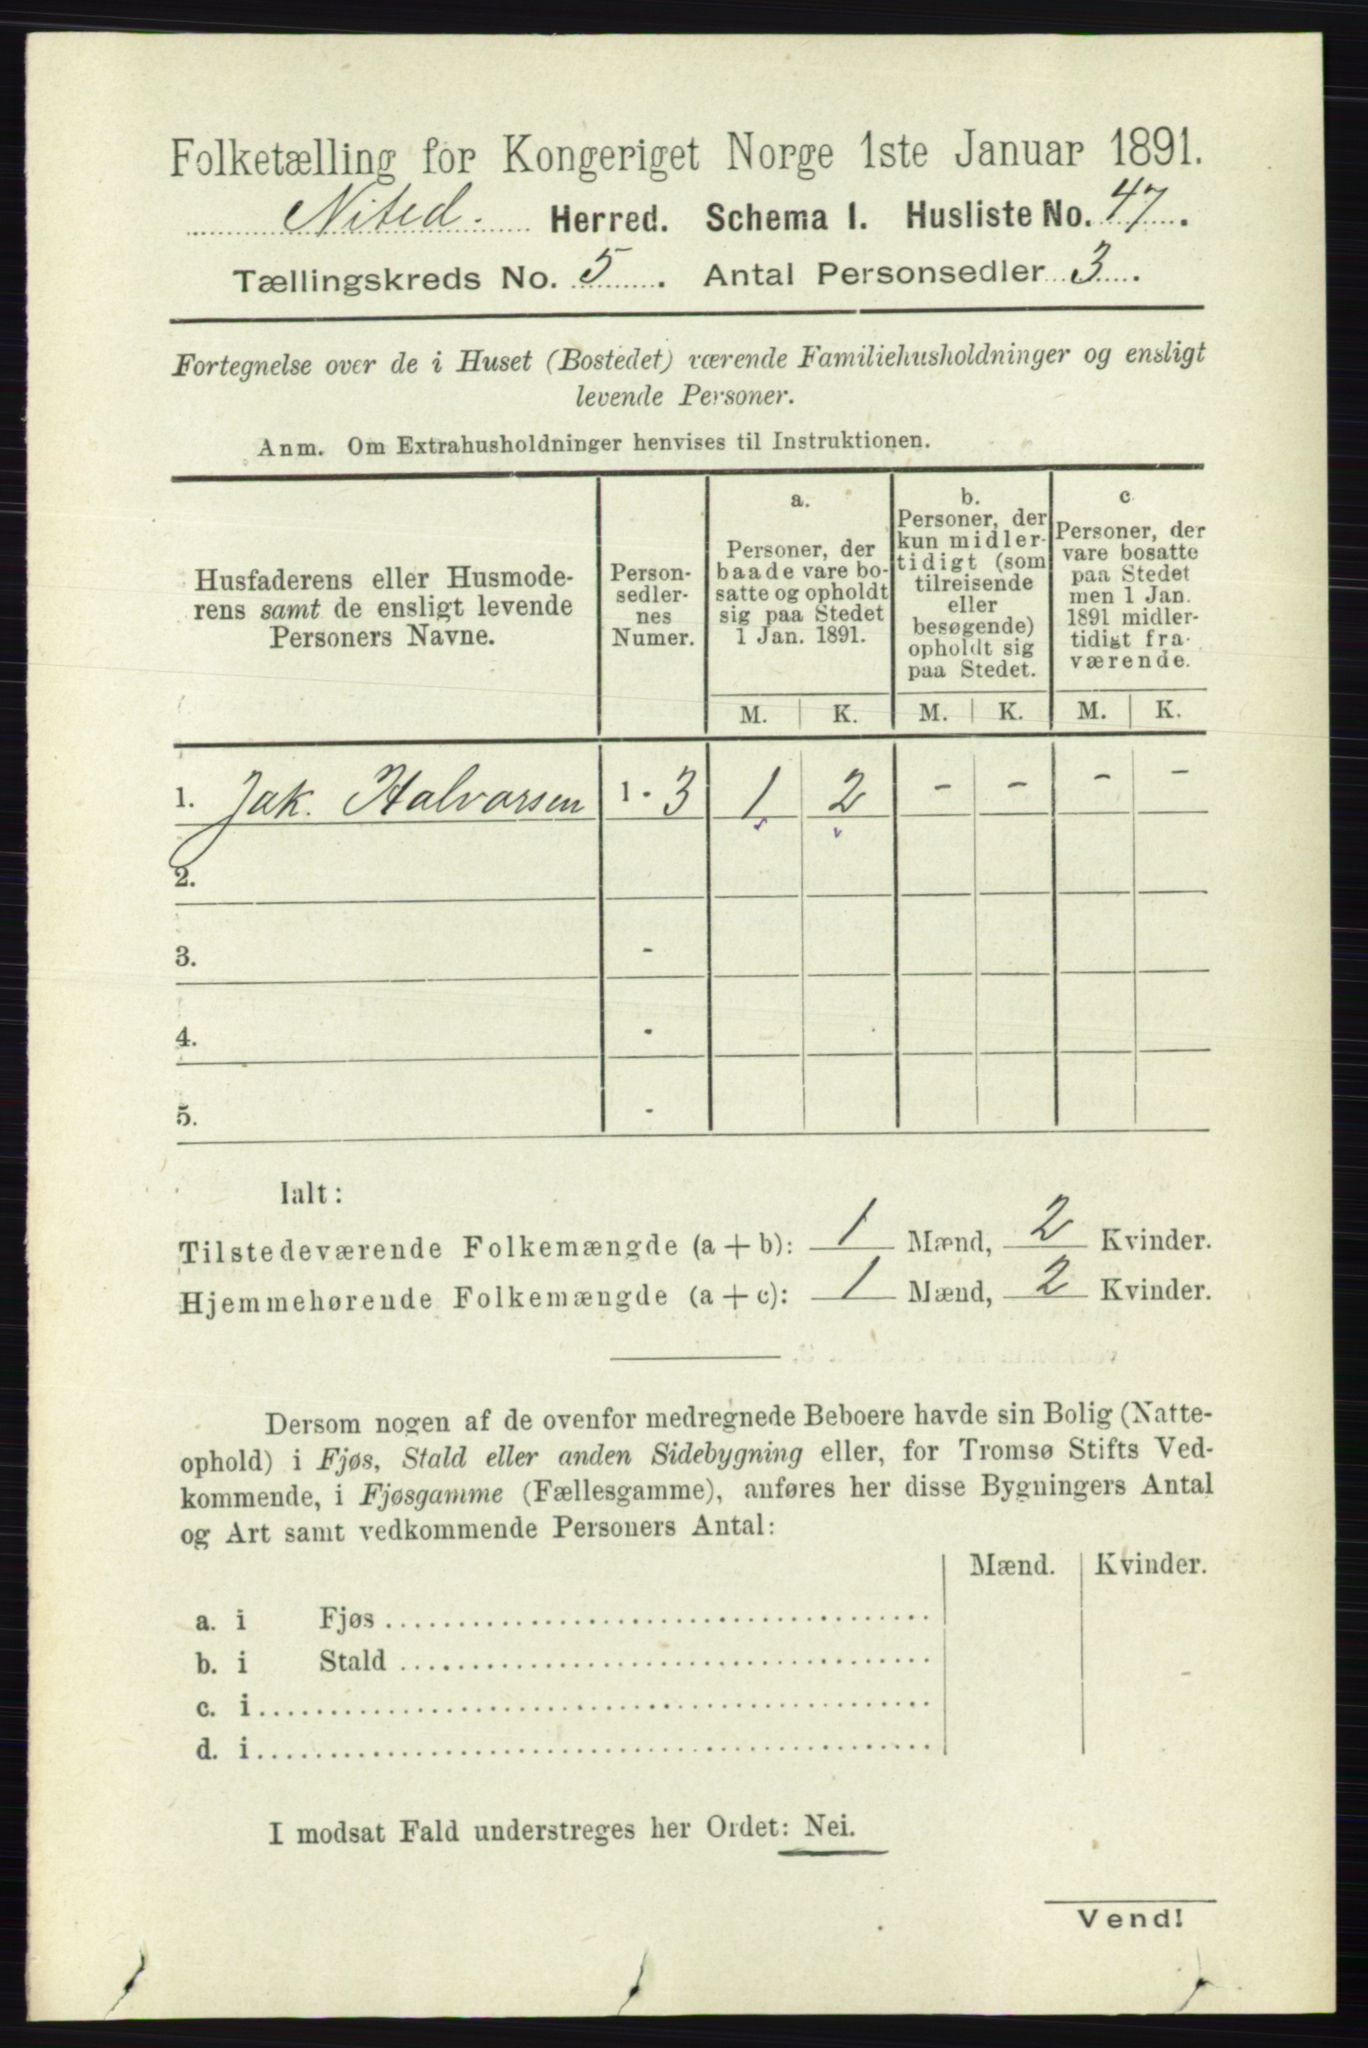 Folketælling for Kongeriget Norge 1ste Januar 1891.
Nited. Herred. Schema I. Husliste No. 47.
Tællingskreds No. 5. Antal Personsedler 3.
Fortegnelse over de i Huset (Bostedet) værende Familiehusholdninger og ensligt
levende Personer.
Anm. Om Extrahusholdninger henvises til Instruktionen.
Husfaderens eller Husmode-
rens samt de ensligt levende
Personers Navne.
Person-
sedler-
nes
Numer.
a.
Personer, der
baade vare bo-
satte og opholdt
sig paa Stedet
1 Jan. 1891.
M. K.
b.
Personer, der
kun midler-
tidigt (som
tilreisende
eller
besøgende)
opholdt sig
paa Stedet.
M. K.
c
Personer, der
vare bosatte
paa Stedet
men 1 Jan.
1891 midler-
tidigt fra-
værende.
M. K.
1. Jak. Halvorsen 1 - 3 1 2 - - - -
2.
3. -
4. -
5. -
Ialt:
Tilstedeværende Folkemængde (a + b): 1 Mænd, 2 Kvinder.
Hjemmehørende Folkemængde (a + c): 1 Mænd, 2 Kvinder.
Dersom nogen af de ovenfor medregnede Beboere havde sin Bolig (Natte-
ophold) i Fjøs, Stald eller anden Sidebygning eller, for Tromsø Stifts Ved-
kommende, i Fjøsgamme (Fællesgamme), anføres her disse Bygningers Antal
og Art samt vedkommende Personers Antal:
Mænd. Kvinder.
a. i Fjøs
b. i Stald
c. i
d. i
I modsat Fald understreges her Ordet: Nei.
Vend!